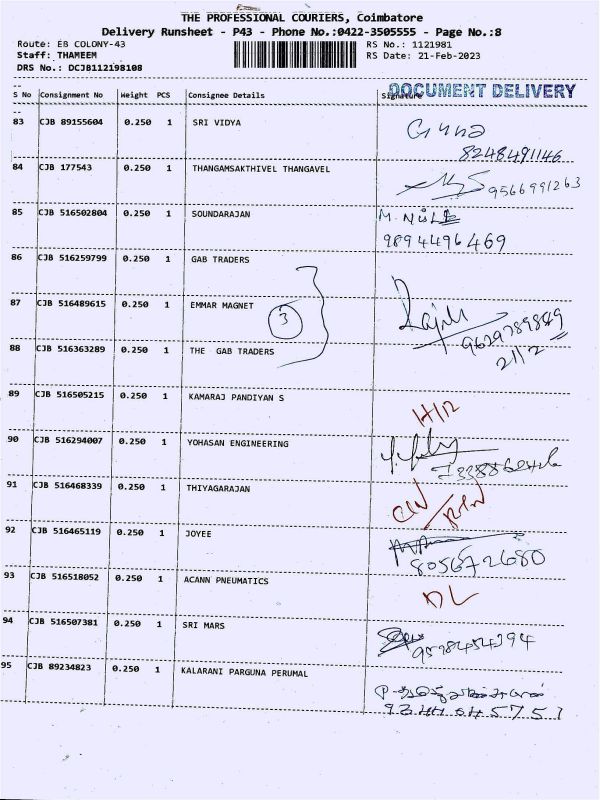 THE PROFESSIONAL COURIERS, Coimbatore
Delivery Runsheet - P43 - Phone No.:0422-3505555 - Page No.:8
Route: EB COLONY-43 RS No.: 1121981
Staff: THAMEEM RS Date: 21-Feb-2023
DRS No.: DCJB112198108
DOCUMENT DELIVERY
S No Consignment No Weight PCS Consignee Details Signature
83 CJB 89155604 0.250 1 SRI VIDYA Guna
8248491146
84 CJB 177543 0.250 1 THANGAMSAKTHIVEL THANGAVEL
9566991263
85 CJB 516502804 0.250 1 SOUNDARAJAN M.
9894496469
86 CJB 516259799 0.250 1 GAB TRADERS
87 CJB 516489615 0.250 1 EMMAR MAGNET 3
9629789849
88 CJB 516363289 0.250 1 THE GAB TRADERS 21/2
89 CJB 516505215 0.250 1 KAMARAJ PANDIYAN S
90 CJB 516294007 0.250 1 YOHASAN ENGINEERING
91 CJB 516468339 0.250 1 THIYAGARAJAN
92 CJB 516465119 0.250 1 JOYEE
805672680
93 CJB 516518052 0.250 1 ACANN PNEUMATICS DL
94 CJB 516507381 0.250 1 SRI MARS
95 CJB 89234823 0.250 1 KALARANI PARGUNA PERUMAL